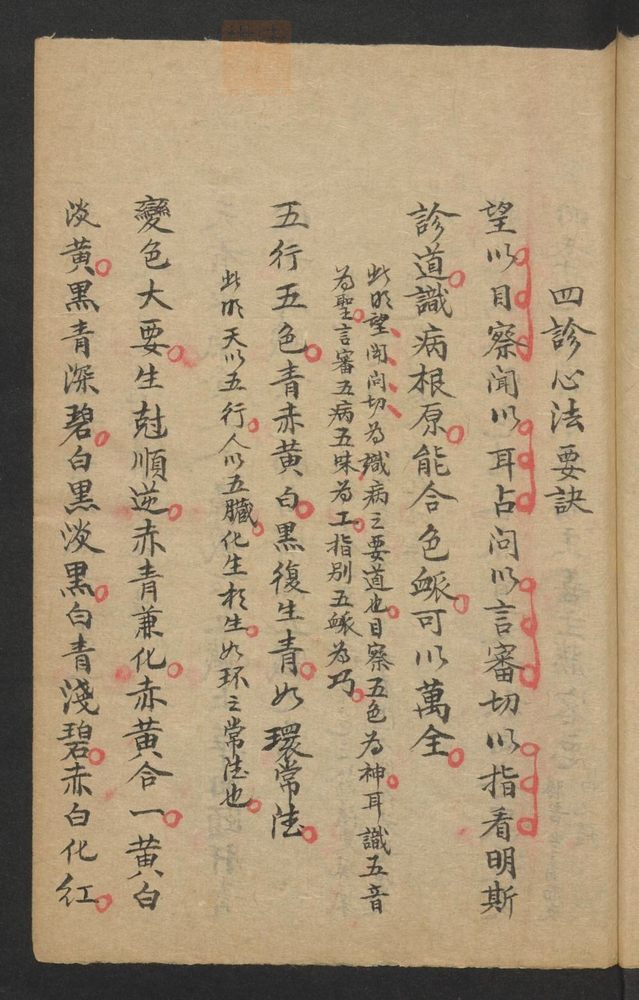 四診心法要訣
望以目察聞以耳占問以言審切以指看明斯
診道識病根原能合色䘑可以萬全
此明望聞問切為識病之要道也目察五色為神耳識五音
為聖言審五病五味為工指別五䘑為巧
五行五色青赤黃白黑復生青如環常法
此明天以五行人以五臟化生於生如环之常法也
變色大要生尅順逆赤青兼化赤黃合一黃白
淡黃黑青深碧白黑淡黑白青淺碧赤白化红